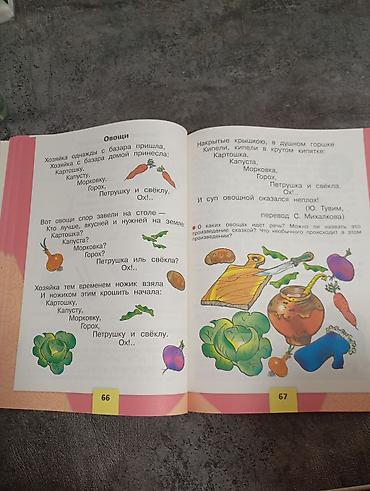 Овощи
Хозяйка однажды с базара пришла,
Хозяйка с базара домой принесла:
Картошку,
Капусту,
Морковку,
Горох,
Петрушку и свёклу.
Ох!..
Вот овощи спор завели на столе —
Кто лучше, вкусней и нужней на земле:
Картошка?
Капуста?
Морковка?
Горох?
Петрушка иль свёкла?
Ох!..
Хозяйка тем временем ножик взяла
И ножиком этим крошить начала:
Картошку,
Капусту,
Морковку,
Горох,
Петрушку и свёклу.
Ох!..
66
Накрытые крышкою, в душном горшке
Кипели, кипели в крутом кипятке:
Картошка,
Капуста,
Морковка,
Горох,
Петрушка и свёкла.
Ох!..
И суп овощной оказался неплох!
(Ю. Тувим,
перевод С. Михалкова)
О каких овощах идёт речь? Можно ли назвать это
произведение сказкой? Что необычного происходит в этом
произведении?
67